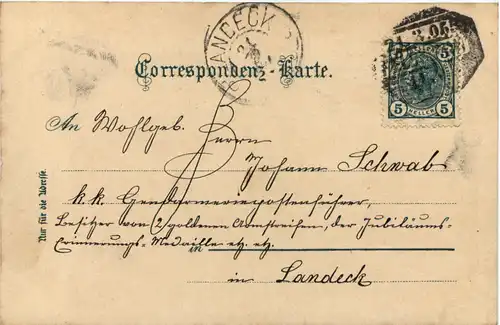 LANDECK
Correspondenz-Karte.
5 5
5 HELLER 5
An Wohlgeb. Herrn
Johann Schwab
k.k. Gendarmeriepostenführer,
Besitzer von (2) goldenen Armstreifen, der Jubiläums-
Erinnerungs-Medaille etz. etz.
in
in Landeck
Nur für die Adresse.